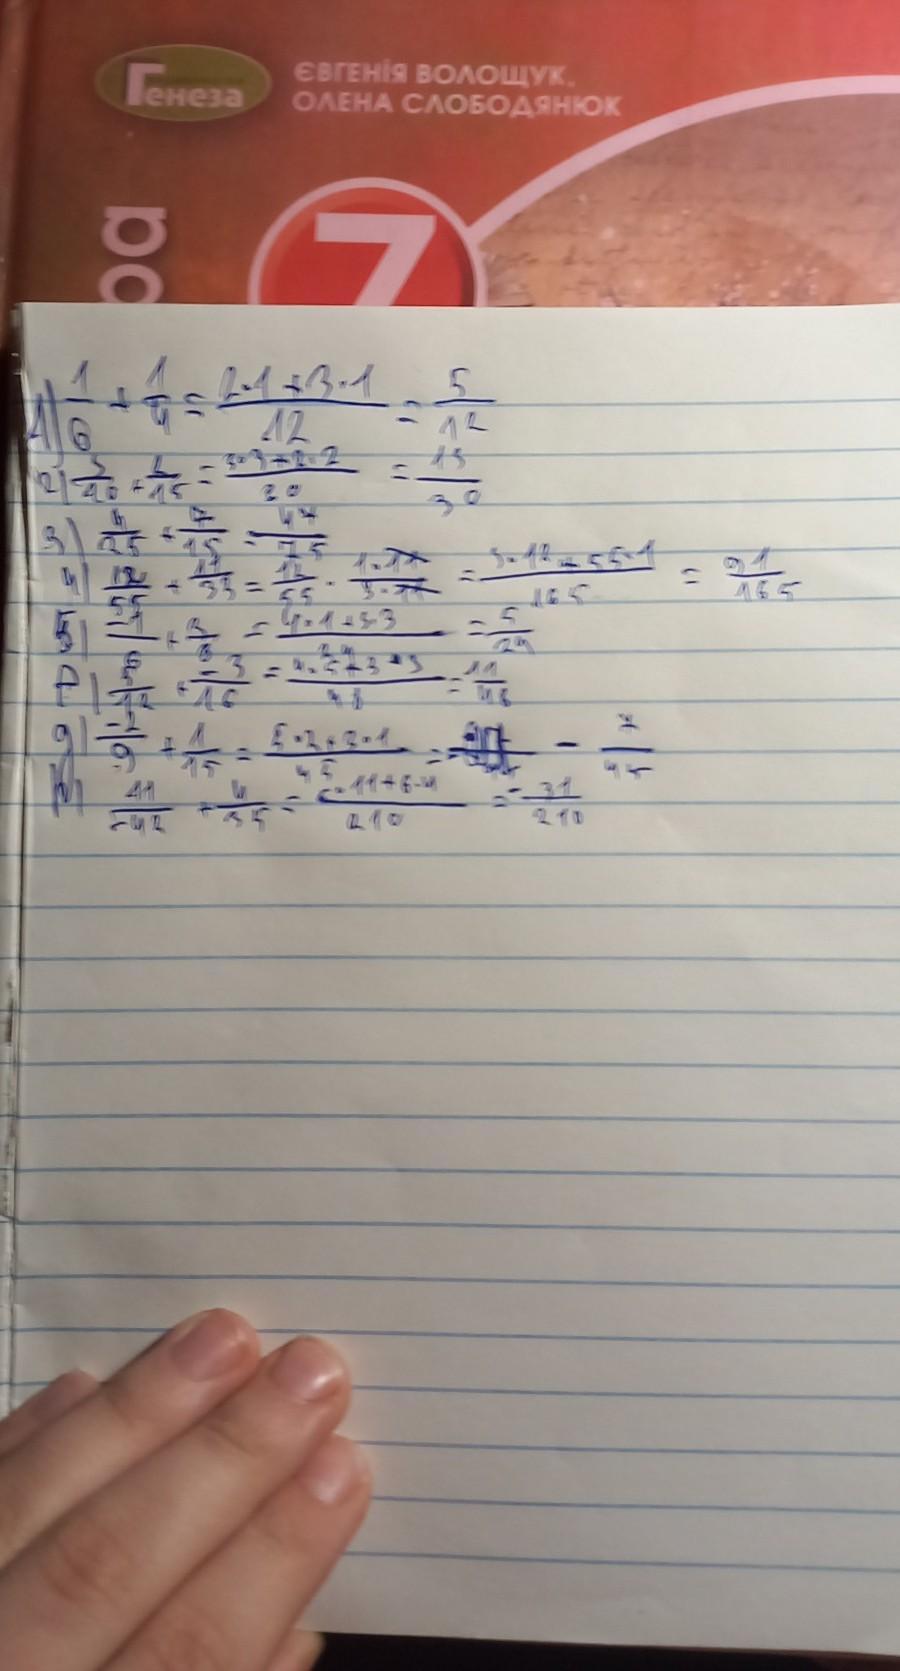 Генеза
ЄВГЕНІЯ ВОЛОЩУК,
ОЛЕНА СЛОБОДЯНЮК
ра
7
1) 1/6 + 1/4 = (2·1+3·1)/12 = 5/12
2) 3/10 + 2/15 = (3·3+2·2)/30 = 13/30
3) 4/25 + 7/15 = 47/75
4) 12/55 + 11/33 = 12/55 · (1·11)/(3·11) = (3·12+55·1)/165 = 91/165
5) -1/6 + 3/8 = (4·1+3·3)/24 = 5/24
7) 5/12 + -3/16 = (4·5+3·3)/48 = 11/48
9) -2/9 + 1/15 = (5·2+3·1)/45 = - 7/45
11/-42 + 4/35 = (5·11+6·4)/210 = - 31/210